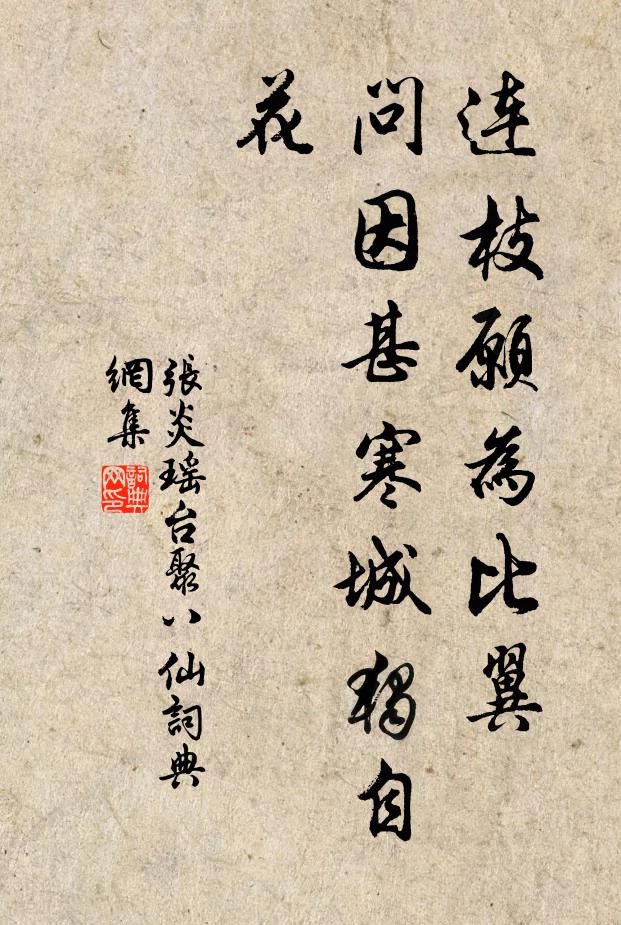 连枝願為比翼
問因甚寒城獨自
花
張炎瑶台聚八仙詞典
網集
詞典
网印